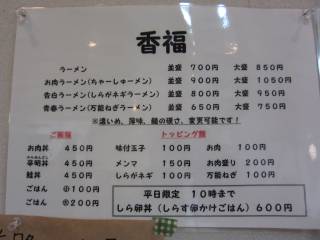 香福
ラーメン 並盛 700円 大盛 850円
お肉ラーメン(ちゃーしゅーメン) 並盛 900円 大盛 1050円
告白ラーメン(しらがネギラーメン) 並盛 800円 大盛 950円
青春ラーメン(万能ねぎラーメン) 並盛 650円 大盛 750円
※濃いめ、薄味、麺の硬さ、変更可能です!
ご飯類 トッピング類
お肉丼 450円 味付玉子 100円 お肉 100円
450円 メンマ 150円 お肉盛り 200円
鮭丼 450円 しらがネギ 100円 万能ねぎ 100円
ごはん 小100円 平日限定 10時まで
ごはん 大200円 しら卵丼(しらす卵かけごはん)600円